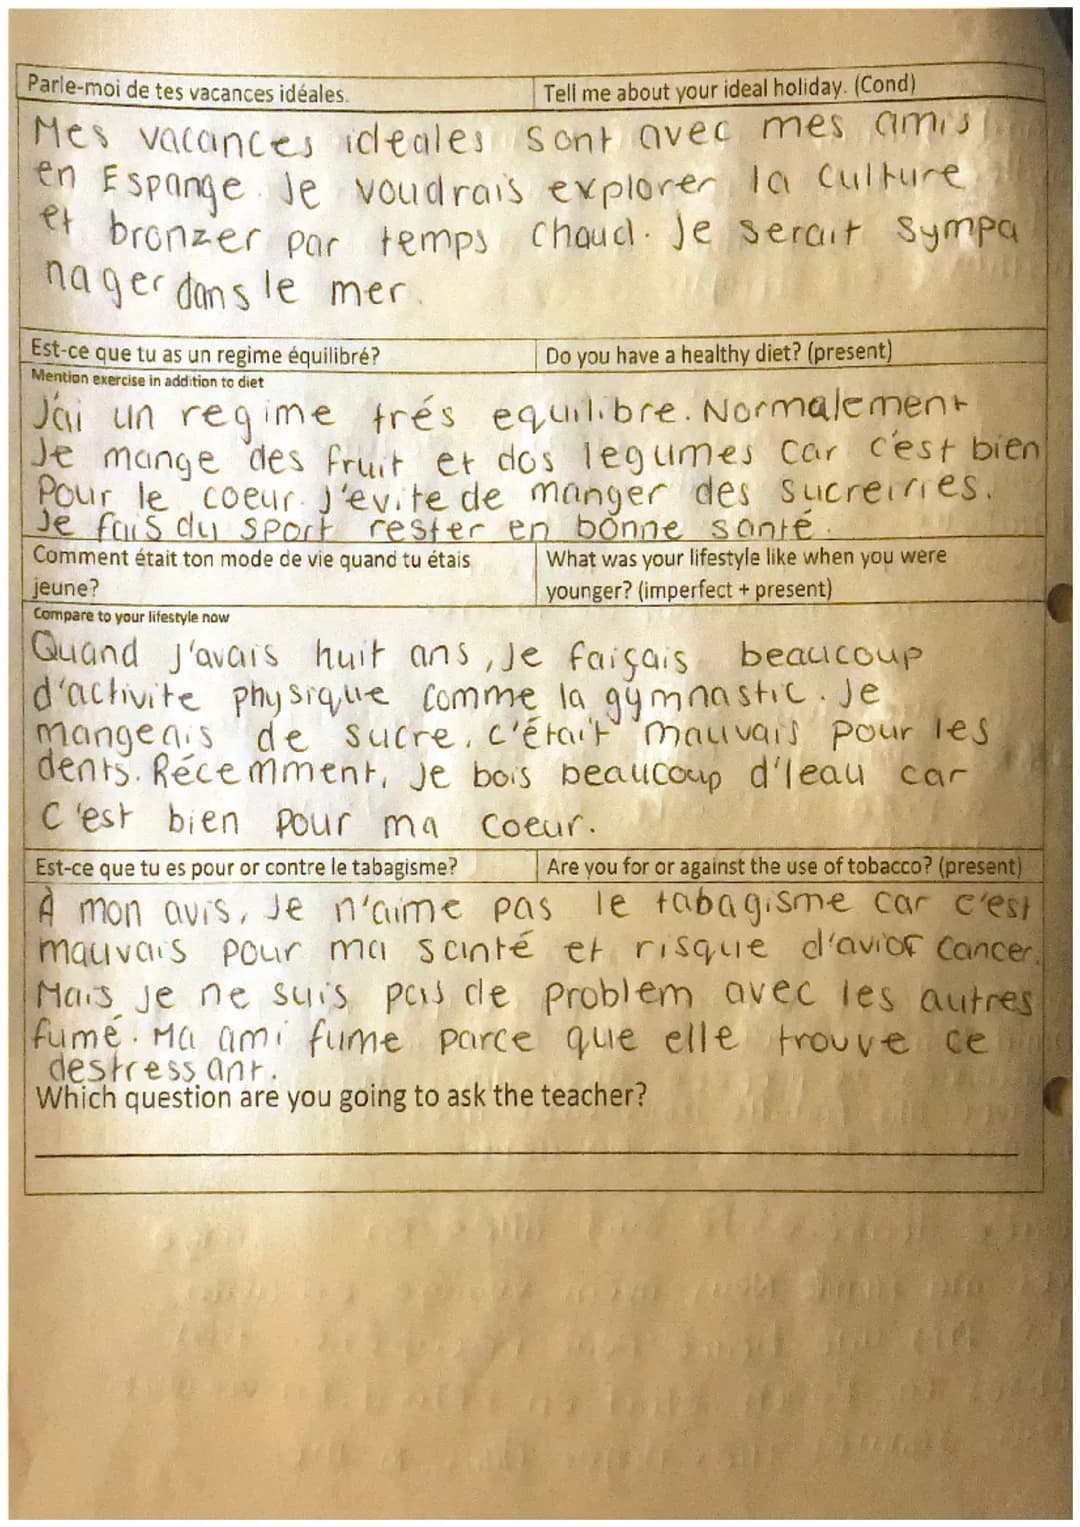 Parle-moi de tes vacances idéales.
Tell me about your ideal holiday. (Cond)
Mes vacances ideales sont avec mes amis
en Espange. Je voudrais explorer la culture
et bronzer par temps chaud. Je serait sympa
nager dans le mer.
Est-ce que tu as un regime équilibré?
Do you have a healthy diet? (present)
Mention exercise in addition to diet
J'ai un regime trés equilibre. Normalement
Je mange des fruit et dos legumes car c'est bien
Pour le coeur. J'evite de manger des sucreiries.
Je fais du sport rester en bonne santé.
Comment était ton mode de vie quand tu étais
jeune?
What was your lifestyle like when you were
younger? (imperfect + present)
Compare to your lifestyle now
Quand J'avais huit ans, Je faisais beaucoup
d'activite physique comme la gymnastic. Je
mangeais de sucre, c'était mauvais pour les
dents. Récemment, Je bois beaucoup d'leau car
c'est bien pour ma coeur.
Est-ce que tu es pour or contre le tabagisme?
Are you for or against the use of tobacco? (present)
À mon avis, Je n'aime pas le tabagisme car c'est
mauvais pour ma santé et risque d'avior cancer.
Mais Je ne suis pas de problem avec les autres
fumé. Ma ami fume parce que elle trouve ce
destressant.
Which question are you going to ask the teacher?